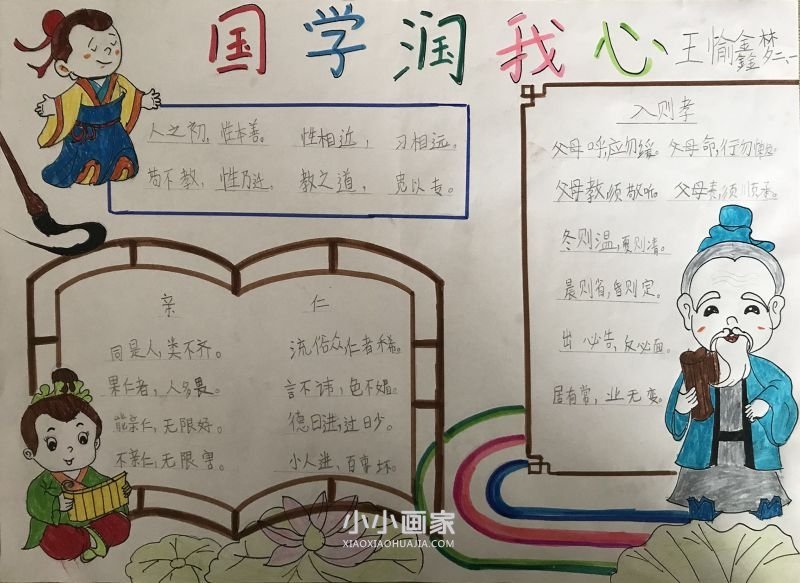 国学润我心 王愉鑫 梦二、一
人之初，性本善。 性相近， 习相远。
苟不教，性乃迁。 教之道， 贵以专。
入则孝
父母呼，应勿缓。父母命，行勿懒。
父母教，须敬听。父母责，须顺承。
冬则温，夏则凊。
晨则省，昏则定。
出必告，反必面。
居有常，业无变。
亲 仁
同是人，类不齐。 流俗众，仁者稀。
果仁者，人多畏。 言不讳，色不媚。
能亲仁，无限好。 德日进，过日少。
不亲仁，无限害。 小人进，百事坏。
小小画家
XIAOXIAOHUAJIA.COM